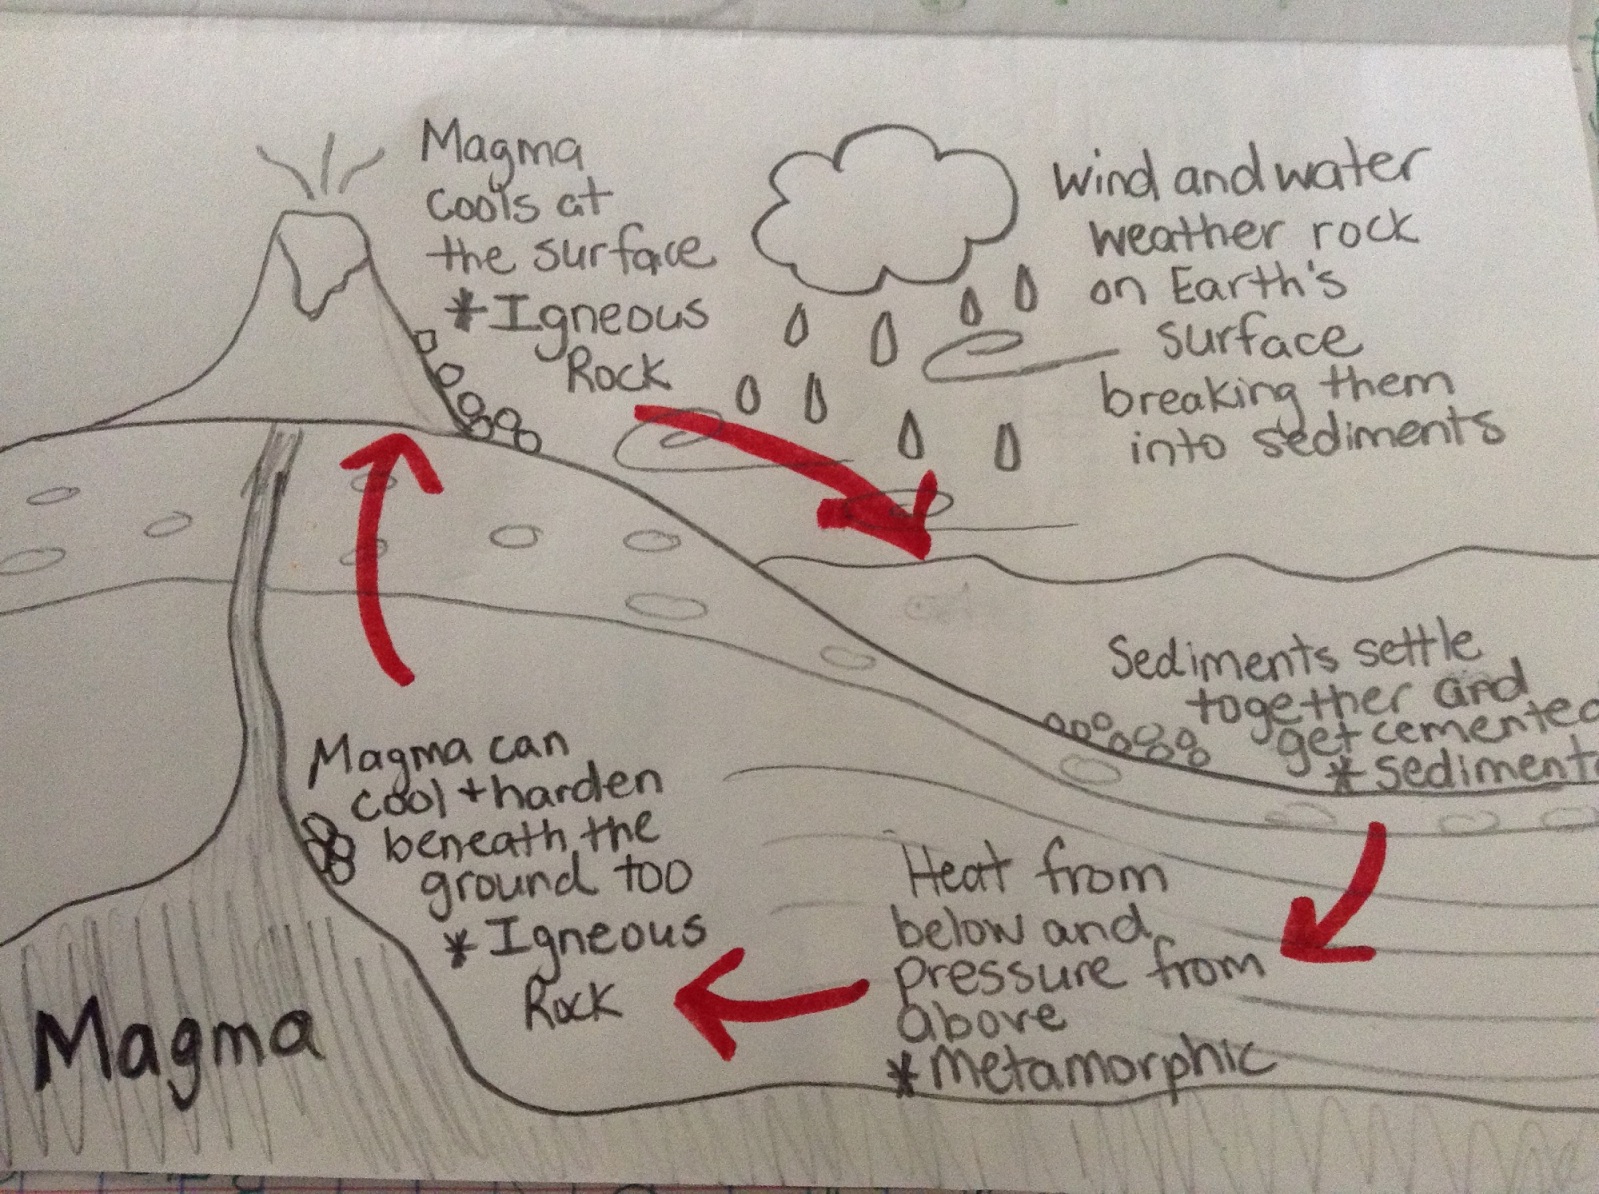 Magma
cools at
the surface
*Igneous
Rock
Wind and water
weather rock
on Earth's
surface
breaking them
into sediments
Sediments settle
together and
get cemented
*Sediment
Magma can
cool + harden
beneath the
ground too
*Igneous
Rock
Heat from
below and
pressure from
above
*Metamorphic
Magma